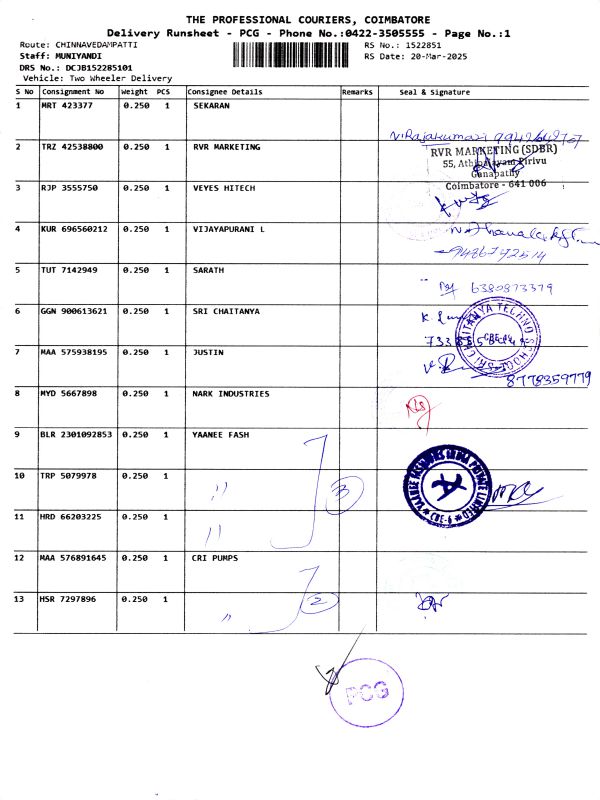 THE PROFESSIONAL COURIERS, COIMBATORE
Delivery Runsheet - PCG - Phone No.:0422-3505555 - Page No.:1
Route: CHINNAVEDAMPATTI
RS No.: 1522851
Staff: MUNIYANDI
RS Date: 20-Mar-2025
DRS No.: DCJB152285101
Vehicle: Two Wheeler Delivery
S No Consignment No Weight PCS Consignee Details Remarks Seal & Signature
1 MRT 423377 0.250 1 SEKARAN
2 TRZ 42538800 0.250 1 RVR MARKETING
RVR MARKETING (SDBR)
Ganapathy
Coimbatore - 641 006
3 RJP 3555750 0.250 1 VEYES HITECH
4 KUR 696560212 0.250 1 VIJAYAPURANI L
9486742514
5 TUT 7142949 0.250 1 SARATH
6380873379
6 GGN 900613621 0.250 1 SRI CHAITANYA
7 MAA 575938195 0.250 1 JUSTIN
8778359779
8 MYD 5667898 0.250 1 NARK INDUSTRIES
9 BLR 2301092853 0.250 1 YAANEE FASH
10 TRP 5079978 0.250 1 " 3
11 HRD 66203225 0.250 1 "
12 MAA 576891645 0.250 1 CRI PUMPS
13 HSR 7297896 0.250 1 " 2
PCG